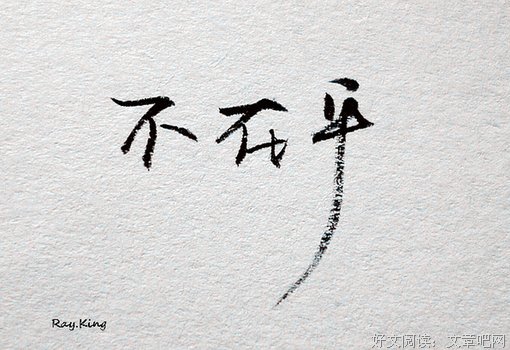 不在乎
Ray.King
好文阅读：文章吧网